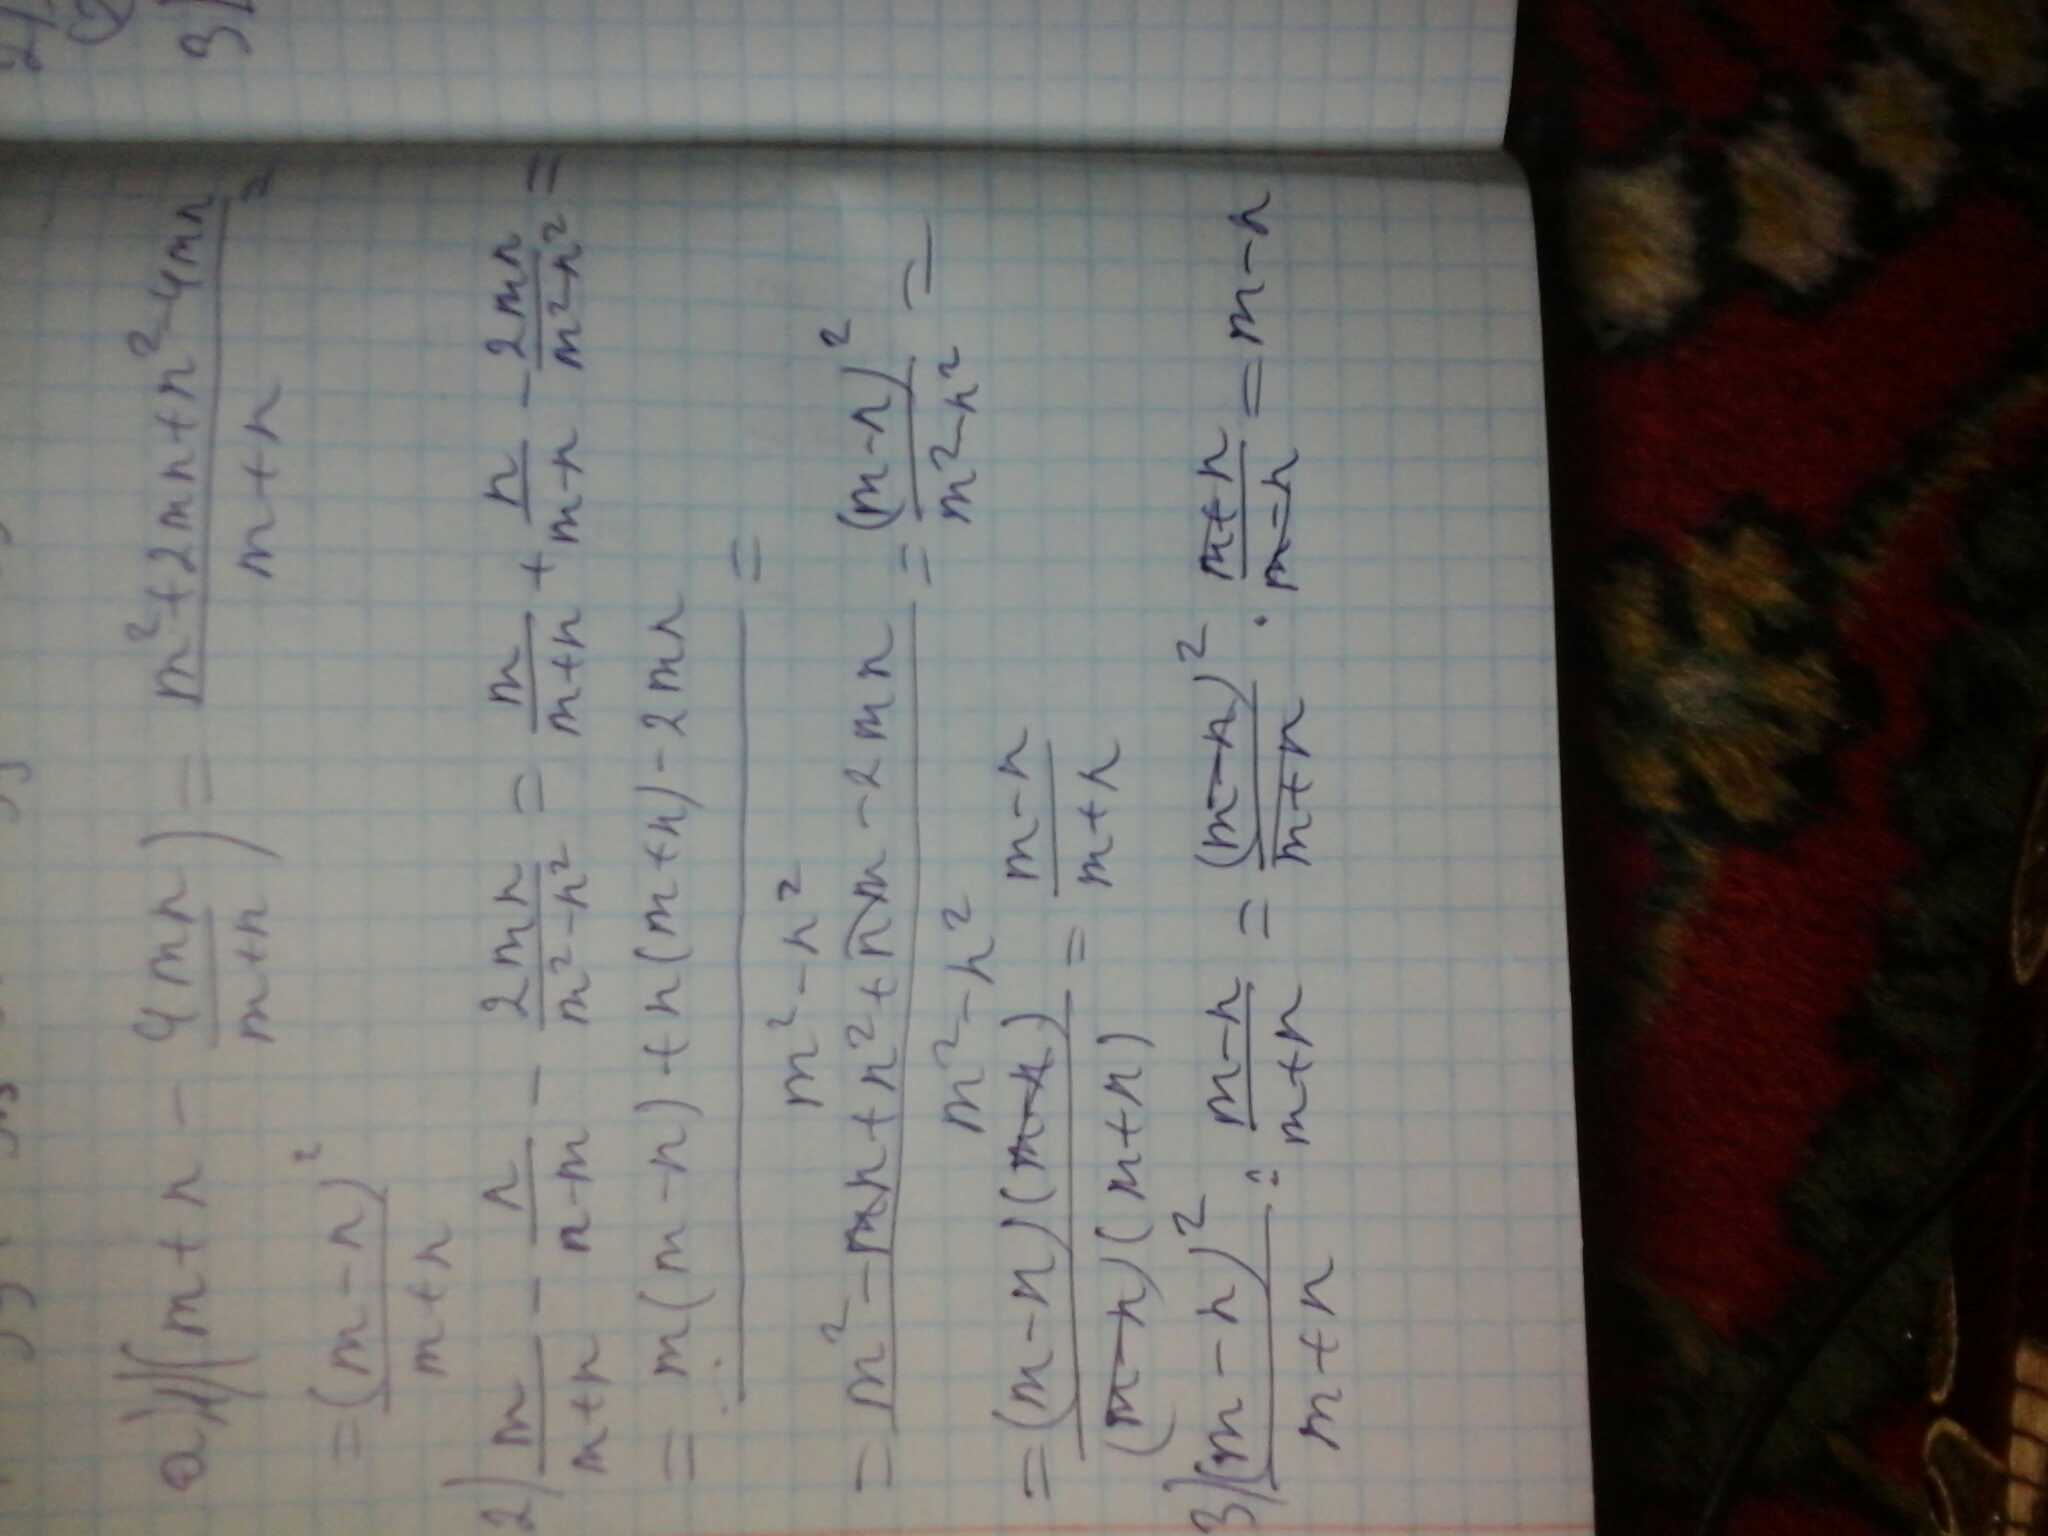 а) 1) (m + n - 4mn/(m+n)) = (m² + 2mn + n² - 4mn)/(m+n) =
= (m - n)²/(m + n)
2) m/(m+n) - n/(n-m) - 2mn/(m²-n²) = m/(m+n) + n/(m-n) - 2mn/(m²-n²) =
= (m(m-n) + n(m+n) - 2mn)/(m²-n²) =
= (m² - mn + n² + nm - 2mn)/(m²-n²) = (m-n)²/(m²-n²) =
= (m-n)(m-n)/((m-n)(m+n)) = (m-n)/(m+n)
3) (m-n)²/(m+n) : (m-n)/(m+n) = (m-n)²/(m+n) · (m+n)/(m-n) = m-n
2)
(2
3)